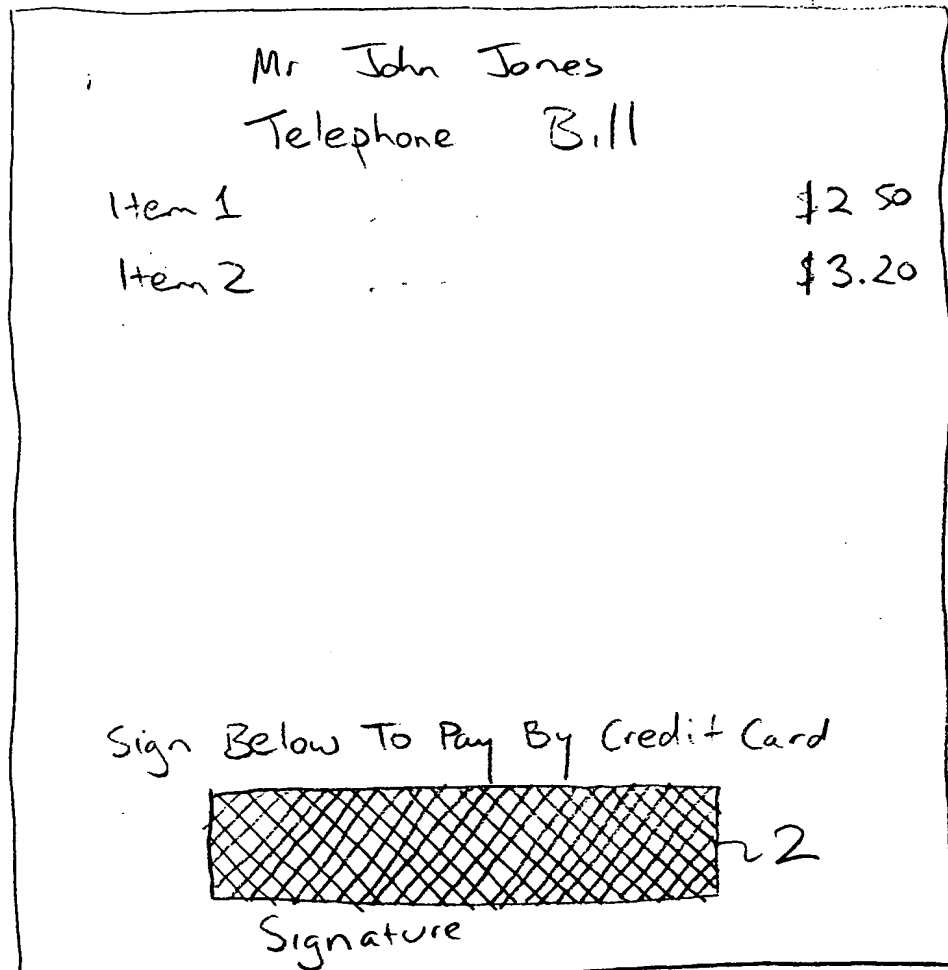 Mr John Jones
Telephone Bill
Item 1 ... $2 50
Item 2 ... $3.20
Sign Below To Pay By Credit Card
2
Signature